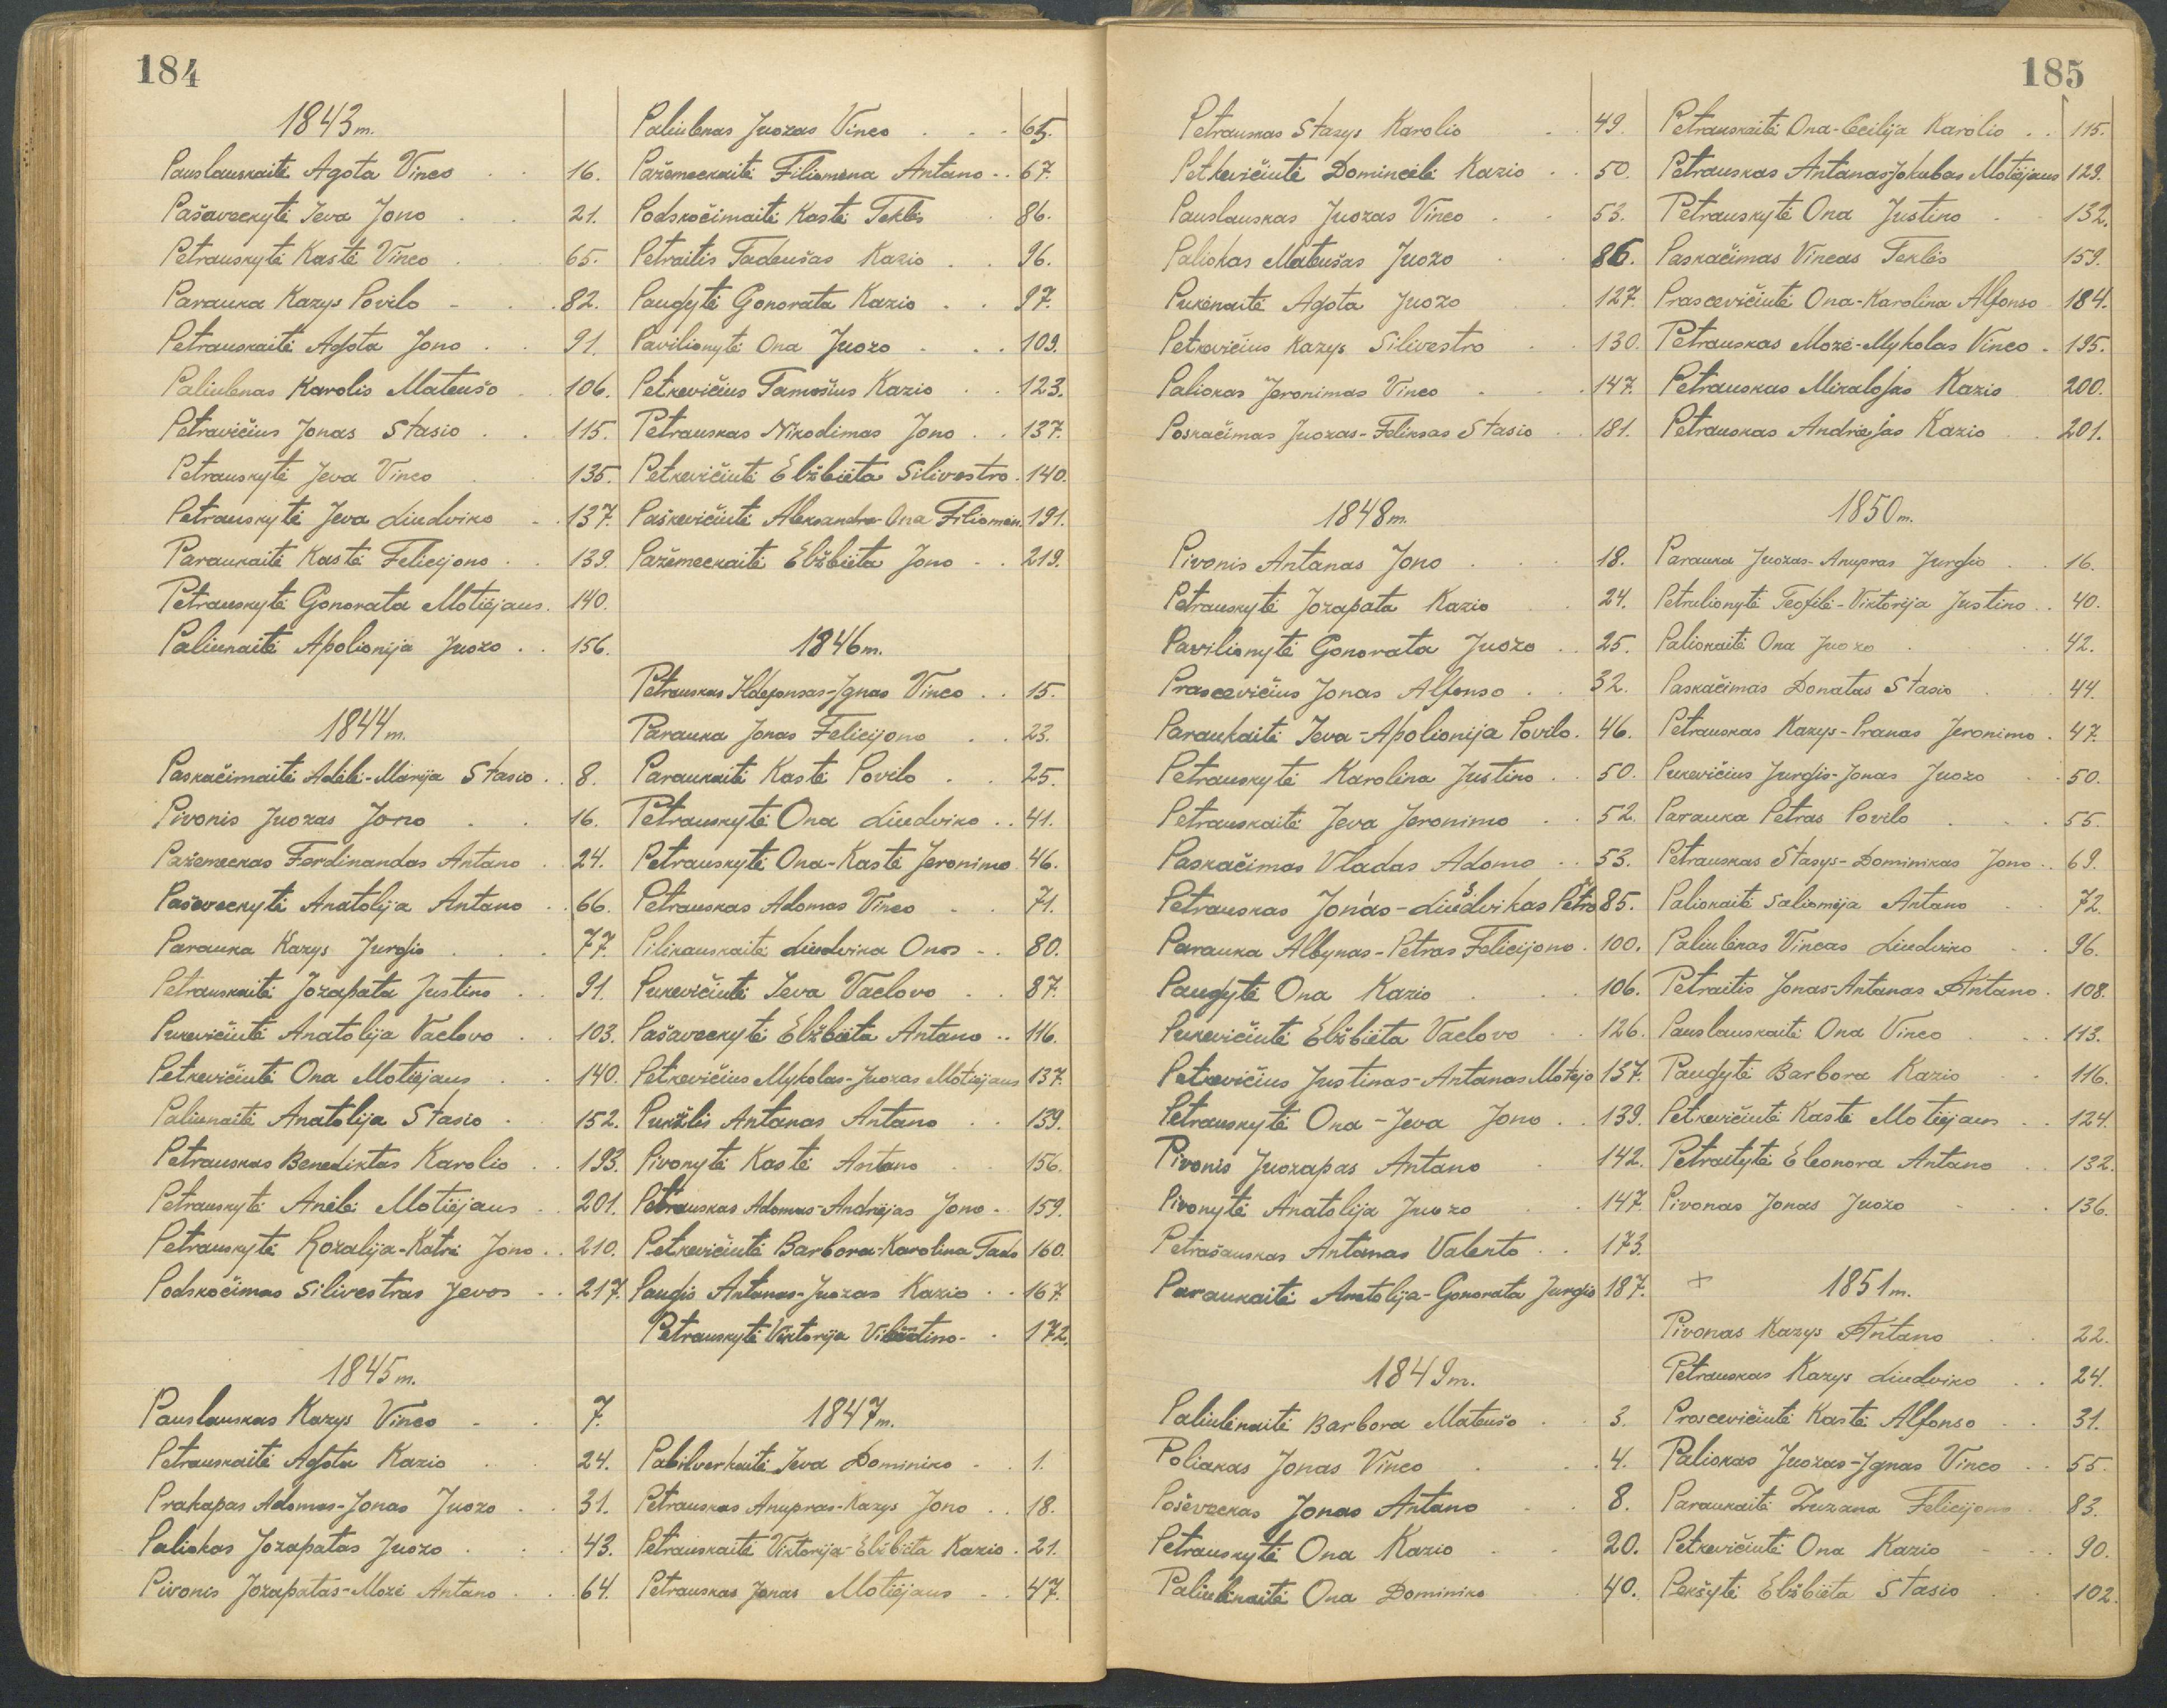 184
1843 m.
Pauslauskaitė Agota Vinco . . 16.
Pašaveckytė Ieva Jono . . 21.
Petrauskytė Kastė Vinco . . 65.
Parauka Kazys Povilo - . . 82.
Petrauskaitė Agota Jono . . 91.
Paliulenas Karolis Mateušo . . 106.
Petravičius Jonas Stasio . . 115.
Petrauskytė Jeva Vinco . . 135.
Petrauskytė Jeva Liudviko . . 137.
Paraukaitė Kastė Felicijono . . 139.
Petrauskytė Gonorata Motiėjaus . 140.
Paliukaitė Apolionija Juozo . . 156.
1844 m.
Paskačimaitė Adėlė-Marija Stasio . . 8.
Pivonis Juozas Jono . . 16.
Pažemeckas Ferdinandas Antano . 24.
Paševeckytė Anatolija Antano . . 66.
Parauka Kazys Jurgio . . . 77.
Petrauskaitė Jozapata Justino . . 91.
Pukevičiutė Anatolija Vaclovo . . 103.
Petkevičiutė Ona Motiejaus . . 140.
Paliunaitė Anatolija Stasio . 152.
Petrauskas Benediktas Karolio . . 193.
Petrauskytė Anėlė Motiėjaus . . 201.
Petrauskytė Rozalija-Katrė Jono . . 210.
Podskočimas Silivestras Jevos . . 217.
1845 m.
Pauslauskas Kazys Vinco - . 7.
Petrauskaitė Agota Kazio . . 24.
Prakapas Adomas-Jonas Juozo . . 31.
Paliokas Jozapatas Juozo . . . 43.
Pivonis Jozapatas-Mozė Antano . . . 64.
Paliulenas Juozas Vinco . . . 65.
Pažemeckaitė Filiomena Antano . . 67.
Podskočimaitė Kastė Teklės . 86.
Petraitis Tadeušas Kazio . . 96.
Paugytė Gonorata Kazio . . 97.
Pavilionytė Ona Juozo . . . 109.
Petkevičius Tamošius Kazio . . 123.
Petrauskas Nikodimas Jono . . 137.
Petkevičiutė Elžbiėta Silivestro . 140.
Paškevičiutė Aleksandra-Ona Filiomen. 191.
Pažemeckaitė Elžbiėta Jono . . 219.
1846 m.
Petrauskas Ildefonsas-Ignas Vinco . . 15.
Parauka Jonas Felicijono . . 23.
Paraukaitė Kastė Povilo . . 25.
Petrauskytė Ona Liudviko . . 41.
Petrauskytė Ona-Kastė Jeronimo 46.
Petrauskas Adomas Vinco . . 71.
Pilikauskaitė Liudvika Onos - . 80.
Pukevičiutė Ieva Vaclovo . . 87.
Pašaveckytė Elžbiėta Antano . . 116.
Petkevičius Mykolas-Juozas Motiejaus 137.
Pukšlis Antanas Antano . . 139.
Pivonytė Kastė Antano . . 156.
Petrauskas Adomas-Andriejas Jono . 159.
Petkevičiutė Barbora-Karolina Tado 160.
Paugis Antanas-Juozas Kazio . . 167.
Petrauskytė Viktorija - . 172.
1847 m.
Pabilverkaitė Ieva Dominiko - . 1.
Petrauskas Anupras-Kazys Jono . . 18.
Petrauskaitė Viktorija-Elžbiėta Kazio . 21.
Petrauskas Jonas Motiėjaus - . 47.
185
Petrauskas Stasys Karolio . . 49.
Petkevičiutė Domincėlė Kazio . . 50.
Pauslauskas Juozas Vinco . . 53.
Paliokas Mateušas Juozo . . 86.
Pukenaitė Agota Juozo . . 127.
Petkevičius Kazys Silivestro . . 130.
Paliokas Jeronimas Vinco . . . 147.
Poskačimas Juozas-Feliksas Stasio . . 181.
1848 m.
Pivonis Antanas Jono . . . 18.
Petrauskytė Jozapata Kazio . 24.
Pavilionytė Gonorata Juozo . . 25.
Prascevičius Jonas Alfonso . . 32.
Paraukaitė Ieva-Apolionija Povilo . 46.
Petrauskytė Karolina Justino . . 50.
Petrauskaitė Jeva Jeronimo . . 52.
Paskačimas Vladas Adomo . . 53.
Petrauskas Jonas-Liudvikas Petro 85.
Parauka Albynas-Petras Felicijono . 100.
Paugytė Ona Kazio . . . 106.
Pukevičiutė Elžbiėta Vaclovo . . 126.
Petkevičius Justinas-Antanas Motėjo 157.
Petrauskytė Ona-Jeva Jono . . 139.
Pivonis Juozapas Antano . 142.
Pivonytė Anatolija Juozo . . 147.
Petrašauskas Antanas Valento . . 173.
Paraukaitė Anatolija-Gonorata Jurgio 187.
1849 m.
Paliulėnaitė Barbora Mateušo . . 3.
Poliakas Jonas Vinco . . . 4.
Poševeckas Jonas Antano . . 8.
Petrauskytė Ona Kazio . . 20.
Ona Dominiko . . 40.
Petrauskaitė Ona-Cecilija Karolio . . 115.
Petrauskas Antanas-Jokubas Motiėjaus 129.
Petrauskytė Ona Justino . . 132.
Paskačimas Vincas Teklės 159.
Prascevičiutė Ona-Karolina Alfonso 184.
Petrauskas Mozė-Mykolas Vinco . 195.
Petrauskas Mikalojas Kazio 200.
Petrauskas Andriejas Kazio . . 201.
1850 m.
Parauka Juozas-Anupras Jurgio . . 16.
Petrulionytė Teofilė-Viktorija Justino . . 40.
Paliokaitė Ona Juozo . . . 42.
Paskačimas Donatas Stasio . . 44.
Petrauskas Kazys-Pranas Jeronimo . 47.
Pukevičius Jurgis-Jonas Juozo . . 50.
Parauka Petras Povilo . . . 55.
Petrauskas Stasys-Dominikas Jono . . 69.
Paliokaitė Saliomėja Antano . . 72.
Paliulenas Vincas Liudviko . . 96.
Petraitis Jonas-Antanas Antano . 108.
Pauslauskaitė Ona Vinco . . . 113.
Paugytė Barbora Kazio . 116.
Petkevičiutė Kastė Motiėjaus . . 124.
Petraitytė Eleonora Antano . . 132.
Pivonas Jonas Juozo . . . 136.
+ 1851 m.
Pivonas Kazys Antano . . 22.
Petrauskas Kazys Liudviko . . 24.
Proscevičiutė Kastė Alfonso . . 31.
Paliokas Juozas-Ignas Vinco . . 55.
Paraukaitė Zuzana Felicijono . 83.
Petkevičiutė Ona Kazio . . . 90.
Pekšytė Elžbiėta Stasio . . 102.